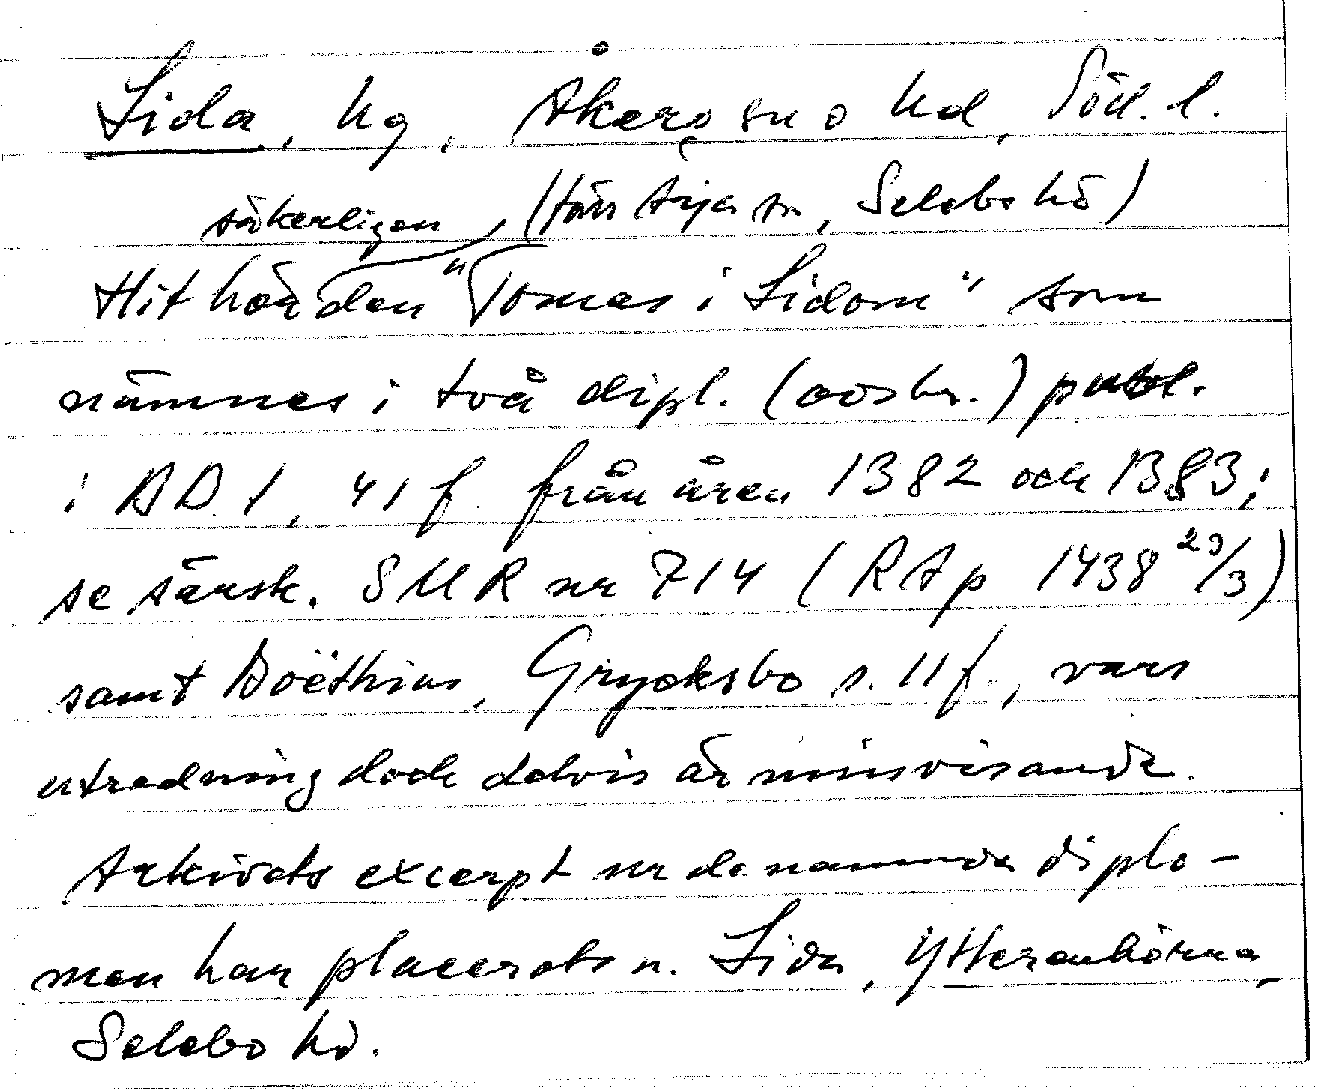 Lida, hg, Åkers sn o hd, Söd. l.
säkerligen (förr Arja sn, Selebo hd)
Hit hör den "Tomas i Lidom" som
nämnes i två dipl. (oostr.) publ.
i ÄD 1, 41 f från åren 1382 och 1383;
se särsk. SMR nr 714 (RAp 1438 23/3)
samt Boëthius, Grycksbo s. 11 f., vars
utredning dock delvis är missvisande.
Arkivets excerpt ur de nämnda diplo-
men har placerats u. Lida, Ytterenhörna,
Selebo hd.